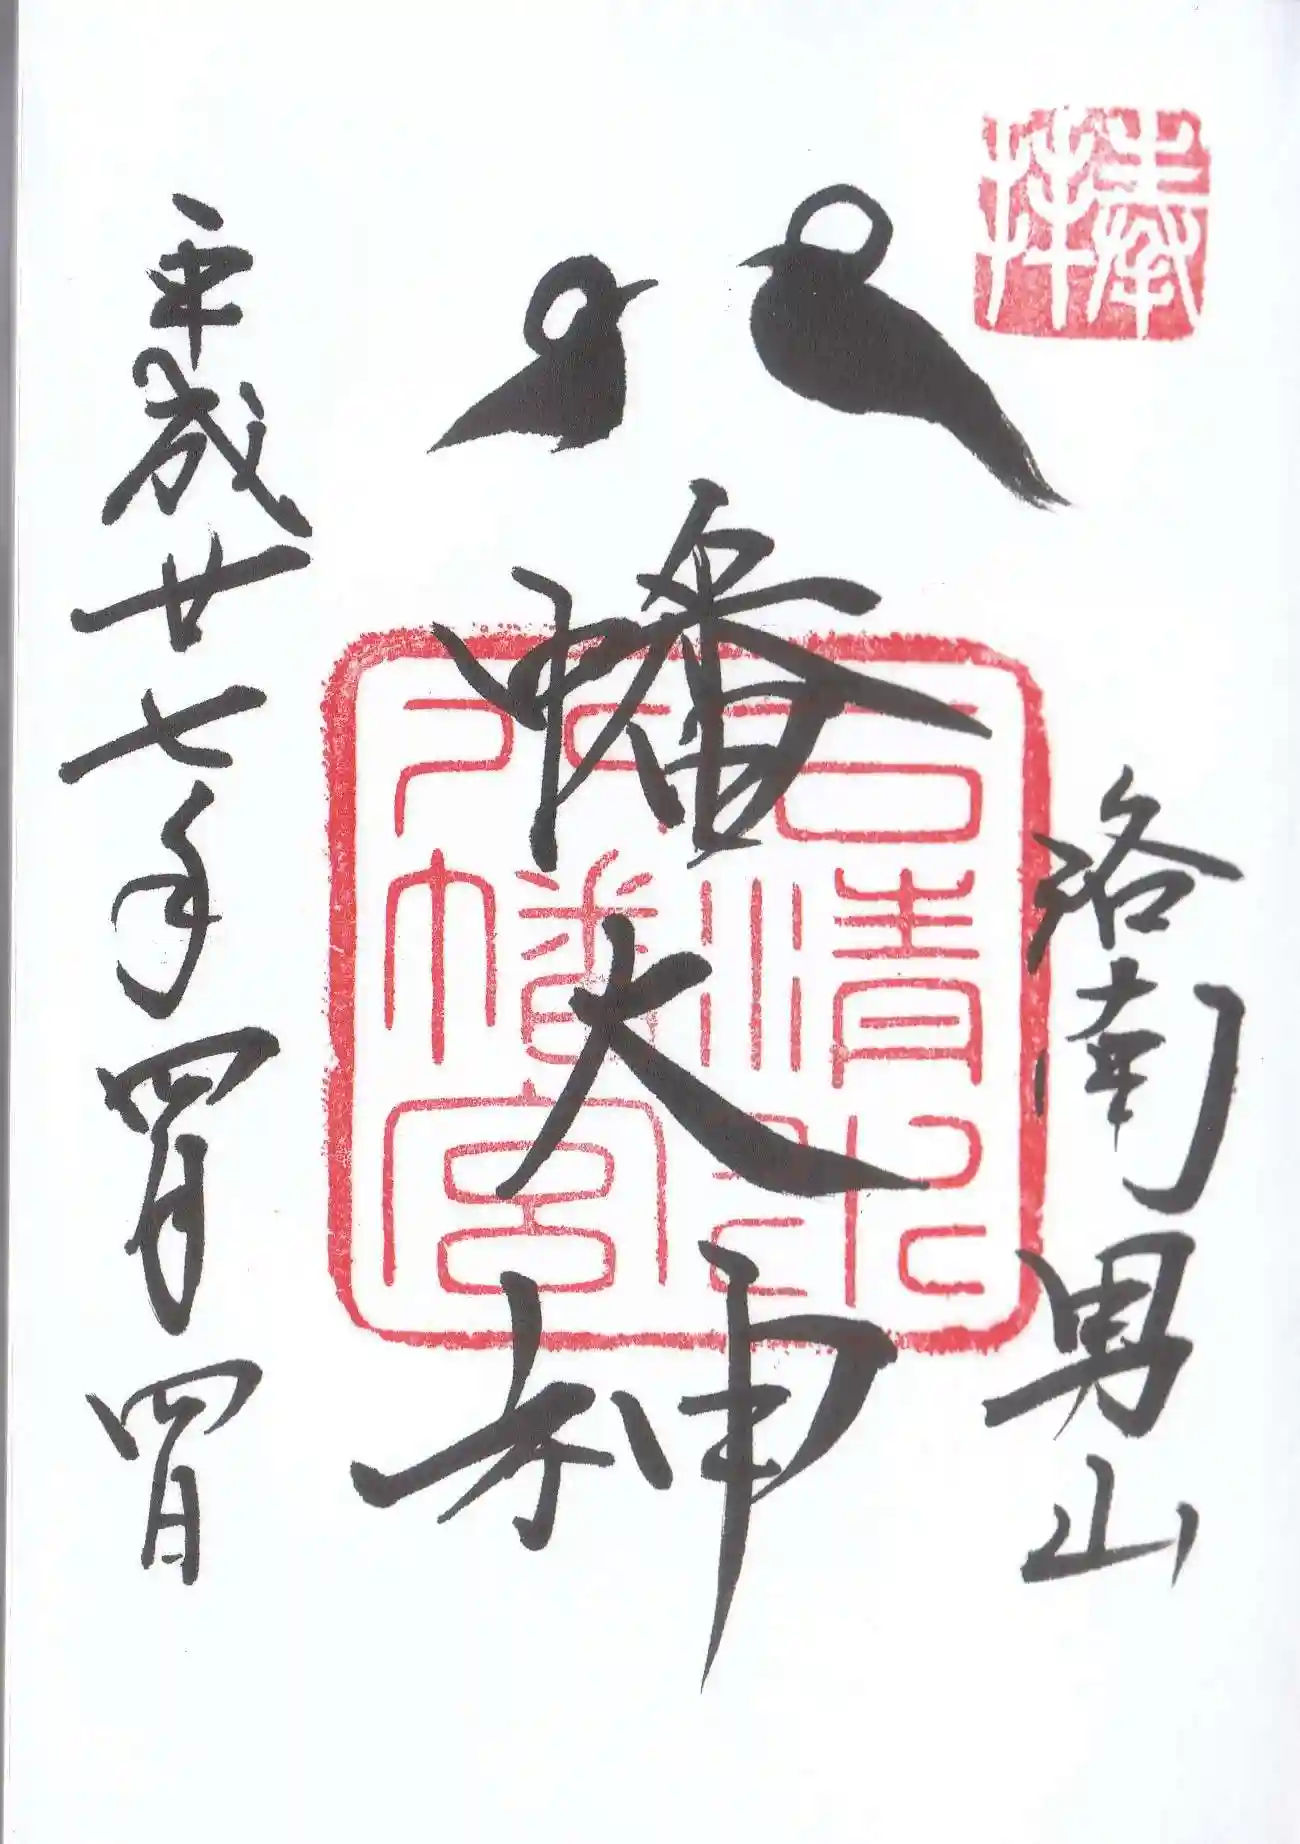 奉拝
洛南男山
八幡大神
石清水八幡宮
平成廿七年四月四日